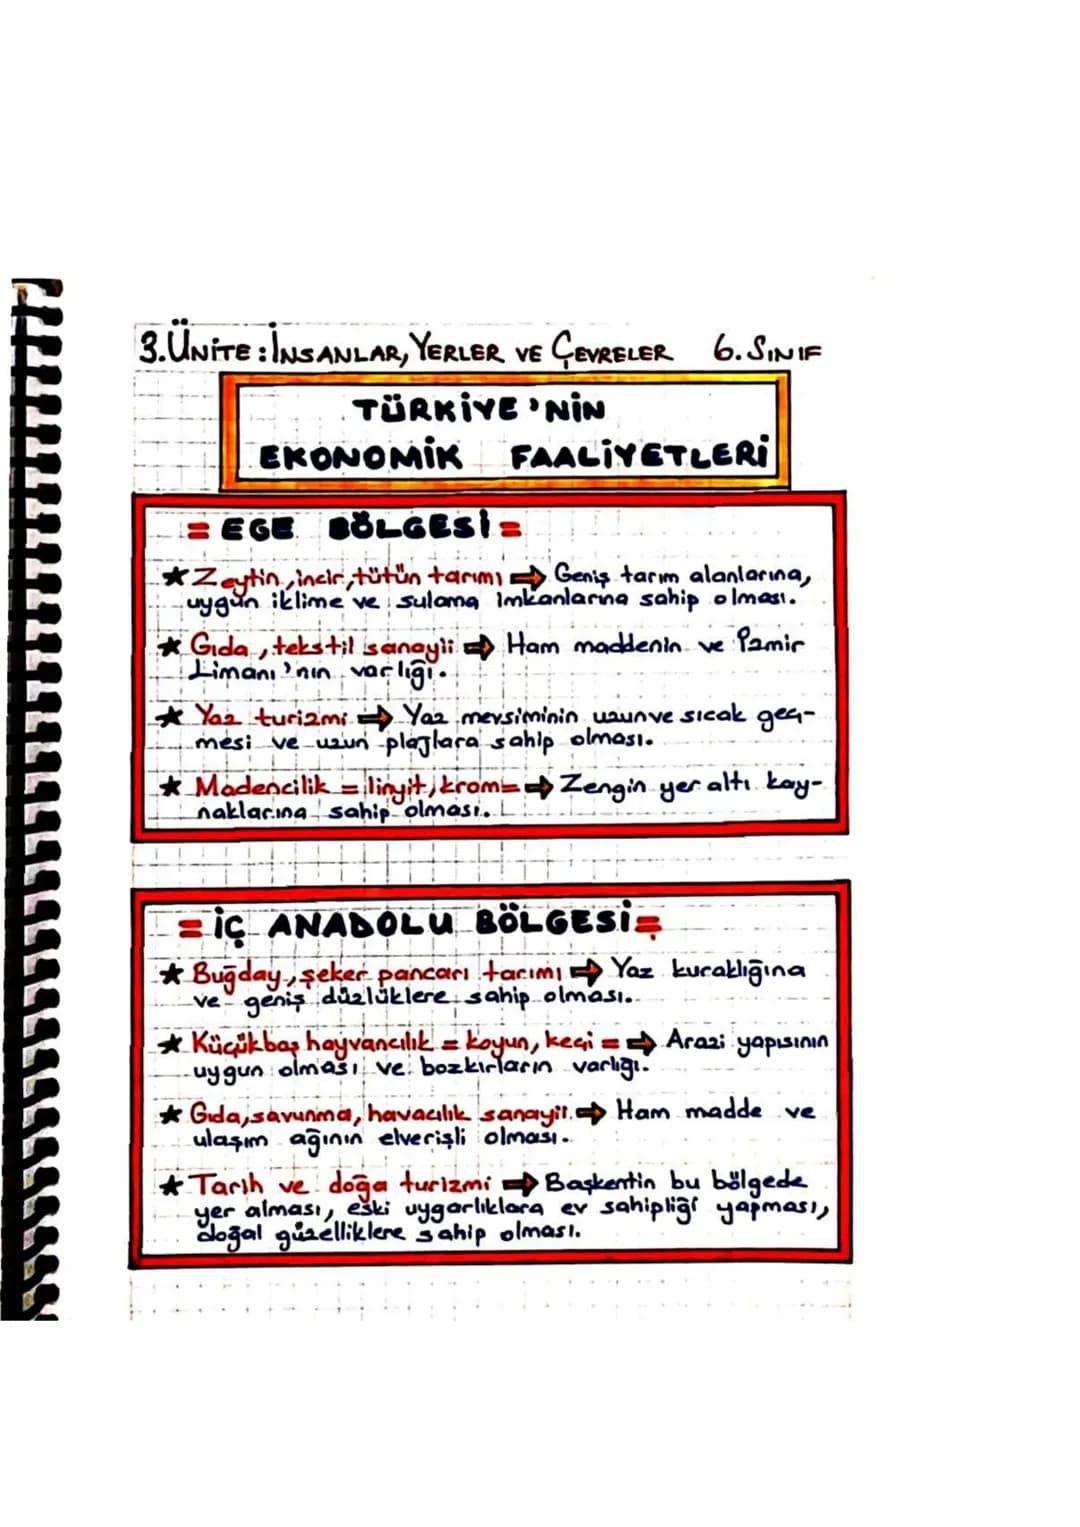 3.ÜNİTE: İNSANLAR, YERLER VE ÇEVRELER 6. SINIF
TÜRKİYE'NİN
EKONOMİK FAALİYETLERİ
= EGE BÖLGESİ =
★ Zeytin, incir, tütün tarımı ⇒ Geniş tarım alanlarına,
uygun iklime ve sulama imkanlarına sahip olması.
★ Gıda, tekstil sanayii ⇒ Ham maddenin ve İzmir
Limanı'nın varlığı.
★ Yaz turizmi ⇒ Yaz mevsiminin uzun ve sıcak geç-
mesi ve uzun plajlara sahip olması.
★ Madencilik = linyit, krom = ⇒ Zengin yer altı kay-
naklarına sahip olması.
= İÇ ANADOLU BÖLGESİ =
★ Buğday, şeker pancarı tarımı ⇒ Yaz kuraklığına
ve geniş düzlüklere sahip olması.
★ Küçükbaş hayvancılık = koyun, keçi = ⇒ Arazi yapısının
uygun olması ve bozkırların varlığı.
★ Gıda, savunma, havacılık sanayii. ⇒ Ham madde ve
ulaşım ağının elverişli olması.
★ Tarih ve doğa turizmi ⇒ Başkentin bu bölgede
yer alması, eski uygarlıklara ev sahipliği yapması,
doğal güzelliklere sahip olması.